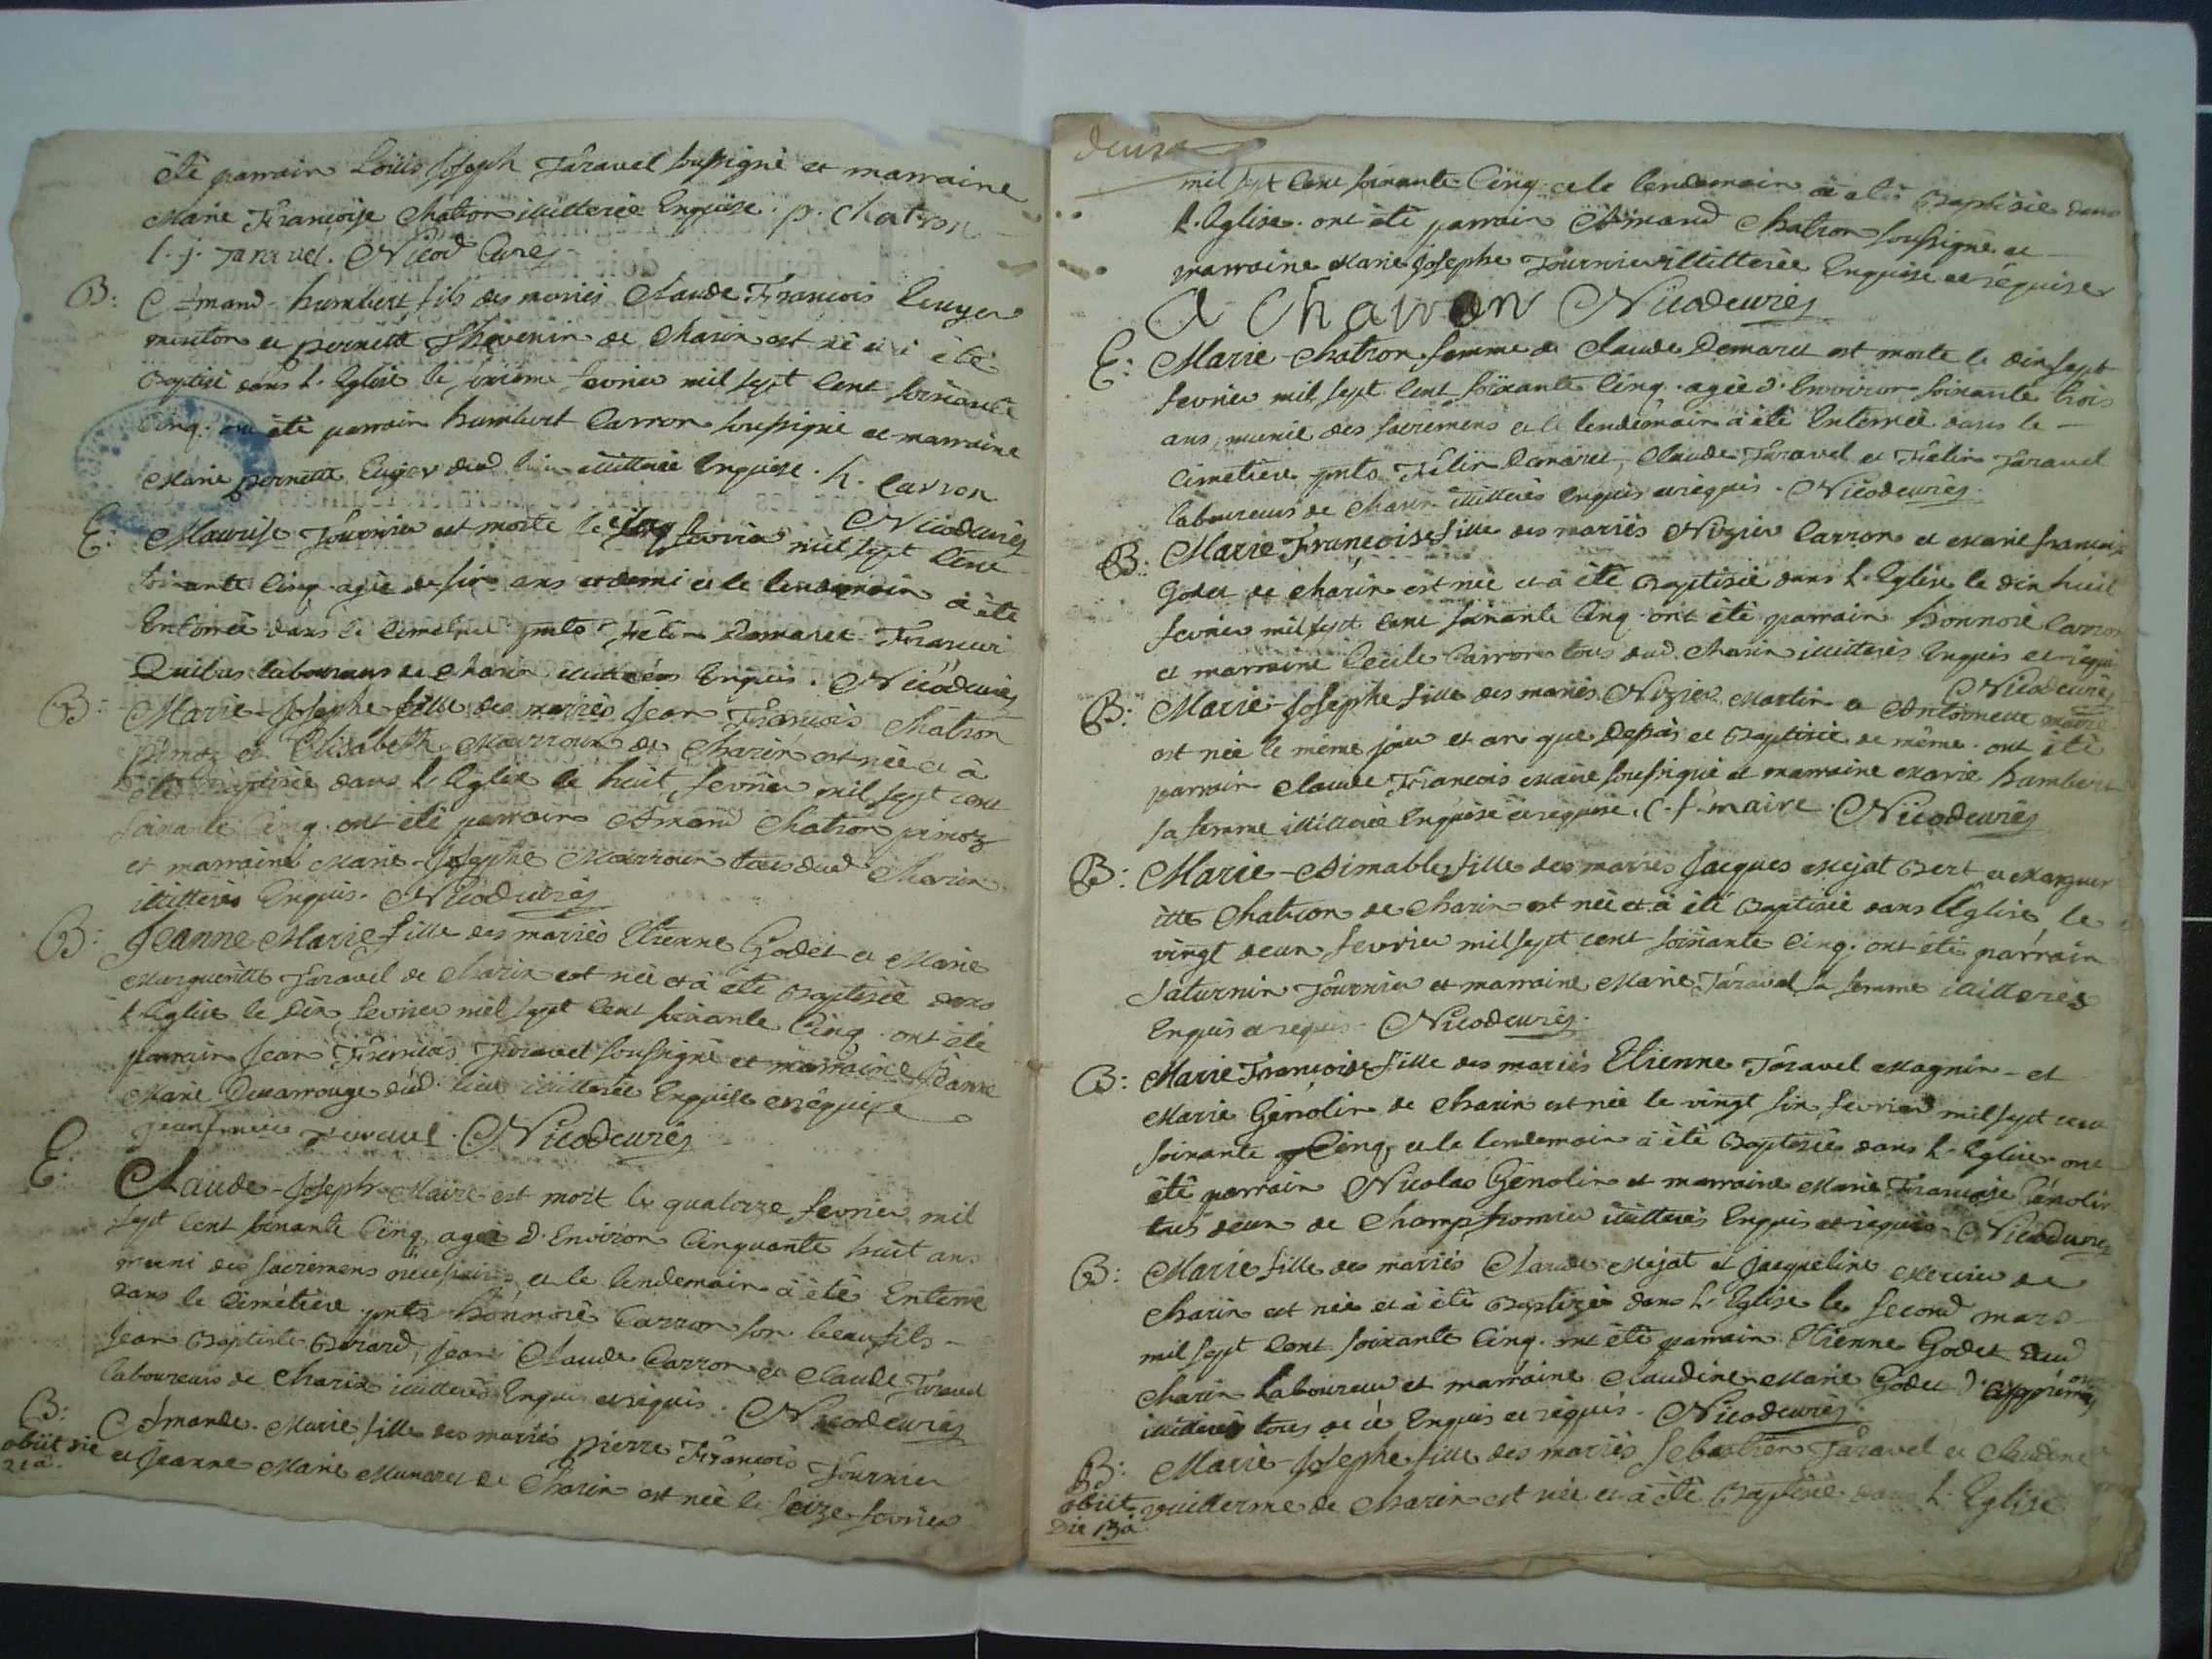 été parrain Loüis Joseph Taravel soussigné et marraine
Marie Françoise Chatron illitterée Enquise. p. chatron
l. j. taravel. Nicod Curé
B: Amand-humbert fils des mariés Claude François Cuyer
et pernette Thévenin de Charix est né et à été
Baptisé dans L'Eglise le fevrier mil sept Cent soixante
Cinq. ont été parrain humbert Carron soussigné et marraine
Marie pernette dud. lieu illitterée Enquise. h. Carron
Nicod curé
E: Maurise Tournier est morte le cinq fevrier mil sept Cent
soixante Cinq agée de six ans et demi et le lendemain à été
Enterrée dans le Cimetiere pnts Felix Demaret François
laboureurs de Charix illitterés Enquis. Nicod curé
B: Marie-Josephe fille des mariés Jean François Chatron
pimoz et Elisabeth de Charix est née et à
été Baptisée dans L'Eglise le huit fevrier mil sept cent
soixante Cinq. ont été parrain Amand Chatron pimoz
et marraine Marie-Josephe tous dud. Charix
illitterés Enquis. Nicod curé
B: Jeanne Marie fille des mariés Etienne Godet et Marie
Margueritte Taravel de Charix est née et à été Baptisée dans
L'Eglise le dix fevrier mil sept Cent soixante Cinq. ont été
parrain Jean François Taravel soussigné et marraine Jeanne
Marie dud. lieu illitterée Enquise et réquise
jean françois taravel. Nicod curé
E: Claude-Joseph Maire est mort le quatorze fevrier mil
sept Cent soixante Cinq, agé d'Environ Cinquante huit ans
muni des sacremens necessaires et le lendemain à été Enterré
dans le Cimétiere pnts honnoré Carron son beau fils-
Jean Baptiste Berard, Jean Claude Carron et Claude Taravel
laboureurs de Charix illitterés Enquis et réquis. Nicod curé
B: Amande-Marie fille des mariés pierre François Tournier
obiit die
21a.
et Jeanne Marie Munaret de Charix est née le seize fevrier
mil sept Cent soixante Cinq et le lendemain à été Baptisée dans
L'Eglise. ont été parrain Amand Chatron soussigné et
marraine Marie Josephe Tournier illitterée Enquise et réquise
A Chatron Nicod curé
E: Marie-Chatron femme de Claude Demaret est morte le dix sept
fevrier mil sept Cent soixante Cinq. agée d'Environ soixante trois
ans, munie des sacremens et le lendemain à été Enterrée dans le-
Cimetiere pnts Félix Demaret, Claude Taravel et Félix Taravel
laboureurs de Charix illitterés Enquis et réquis. Nicod curé
B: Marie Françoise fille des mariés Nizier Carron et Marie françoise
Godet de Charix est née et à été Baptisée dans L'Eglise le dix huit
fevrier mil sept Cent soixante Cinq. ont été parrain honnoré Carron
et marraine Cecile Carron tous dud. Charix illitterés Enquis et réquis
Nicod curé
B: Marie-Josephe fille des mariés Nizier Martin et Antoinette maire
est née le même jour et an que Dessus et Baptisée de même. ont été
parrain Claude François Maire soussigné et marraine Marie humbert
sa femme illitterée Enquise et réquise. C. f. maire. Nicod curé
B: Marie-Aimable fille des mariés Jacques Mejat Bert et Marguer
itte Chatron de Charix est née et à été Baptisée dans L'Eglise le
vingt deux fevrier mil sept cent soixante Cinq. ont été parrain
Saturnin Tournier et marraine Marie Taravel sa femme illitterés
Enquis et requis. Nicod curé
B: Marie Françoise fille des mariés Etienne Taravel Magnin- et
Marie Génolin de Charix est née le vingt six fevrier mil sept cent
soixante Cinq, et le lendemain à été Baptisée dans L'Eglise. ont
été parrain Nicolas Génolin et marraine Marie Françoise Génolin
tous deux de Champfromier illitterés Enquis et réquis. Nicod curé
B: Marie fille des mariés Claude Mejat et Jacqueline Mercier de
Charix est née et à été Baptizée dans L'Eglise le second mars-
mil sept Cent soixante Cinq. ont été parrain Etienne Godet dud
Charix Laboureur et marraine Claudine Marie Godet d'apprémont
illitterés tous de ce Enquis et réquis. Nicod curé
B: Marie-Josephe fille des mariés Sebastien Taravel et Claudine
obiit
Die 13a
vuillerme de Charix est née et à été Baptisée dans L'Eglise